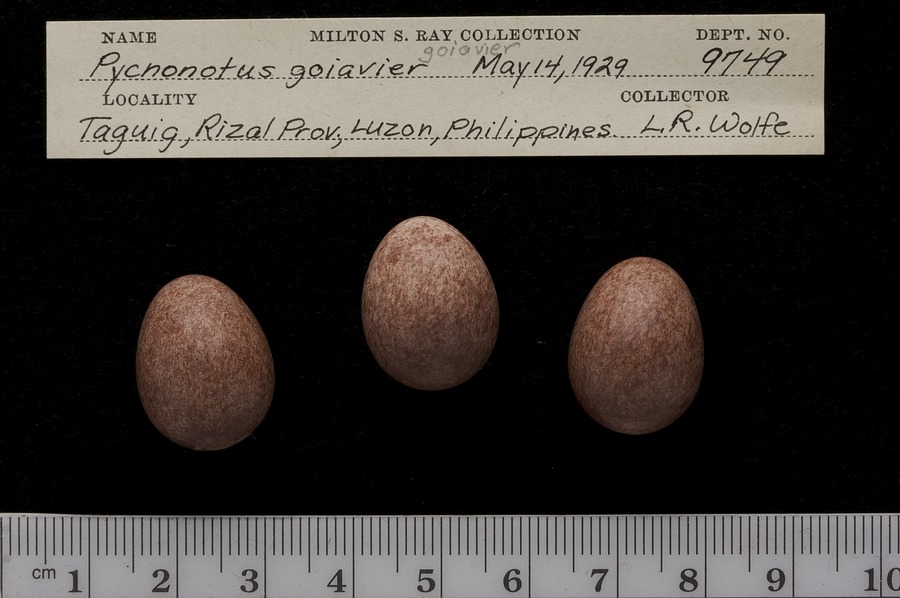 NAME MILTON S. RAY COLLECTION DEPT. NO.
goiavier
Pycnonotus goiavier May 14, 1929 9749
LOCALITY COLLECTOR
Taguig, Rizal Prov., Luzon, Philippines L.R. Wolfe
cm 1 2 3 4 5 6 7 8 9 10